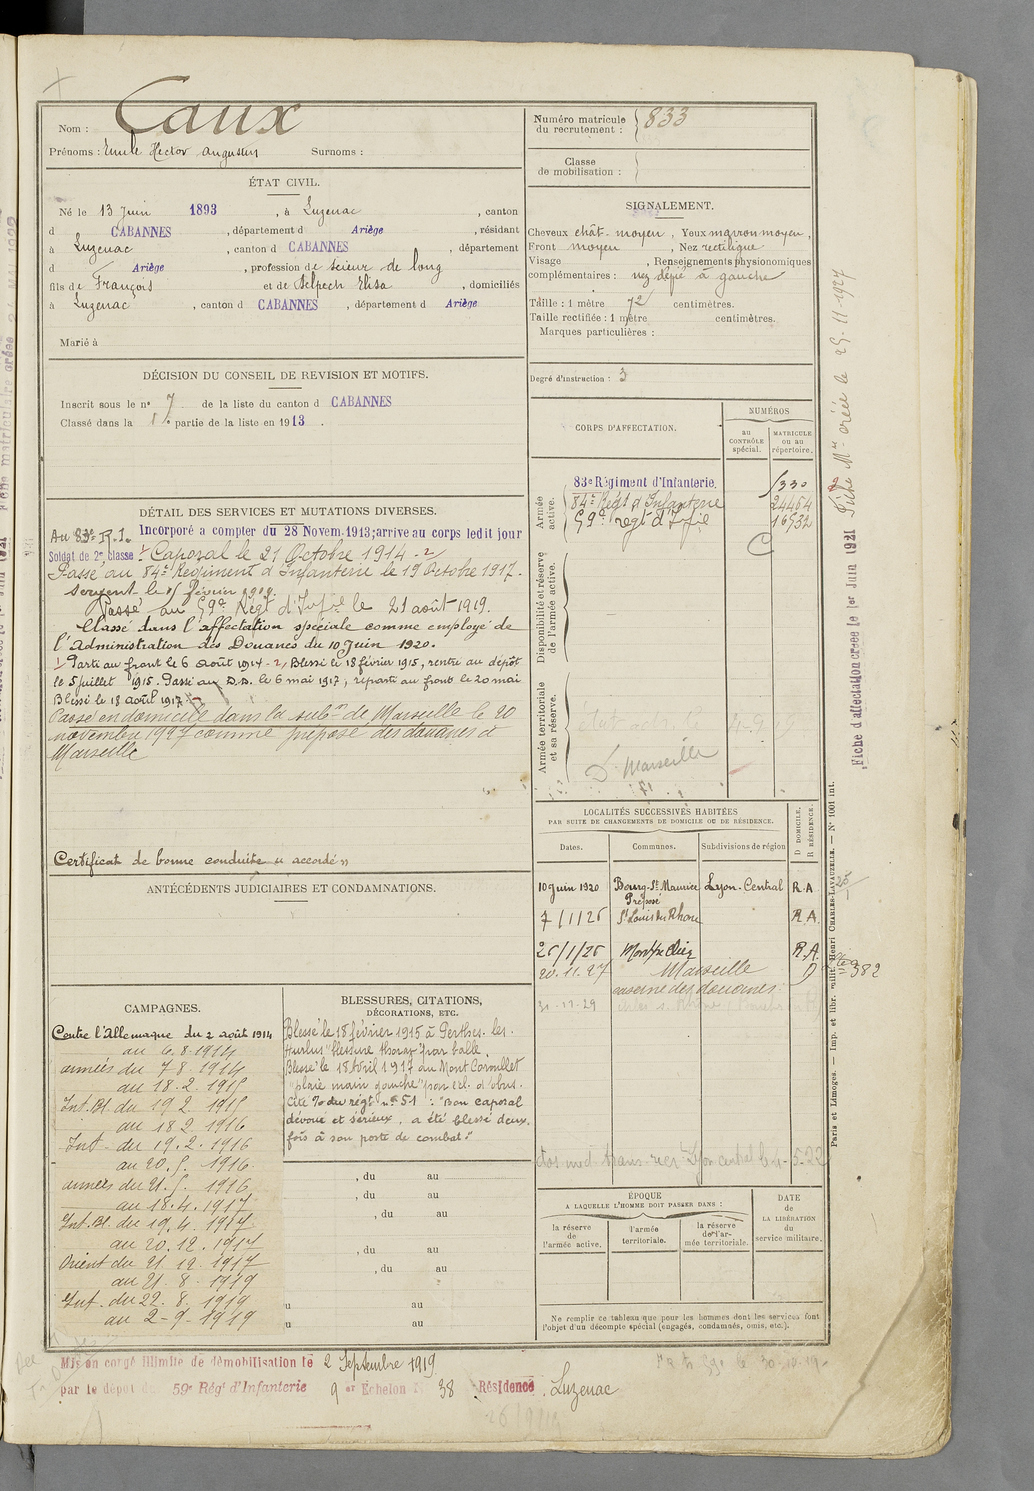 Nom : Caux
Prénoms : Emile Hector Augustin Surnoms :
ÉTAT CIVIL.
Né le 13 Juin 1893, à Luzenac, canton
d CABANNES, département d Ariège, résidant
à Luzenac, canton d CABANNES, département
d Ariège, profession de scieur de long
fils de François et de Delpech Elisa, domiciliés
à Luzenac, canton d CABANNES, département d Ariège
Marié à
DÉCISION DU CONSEIL DE REVISION ET MOTIFS.
Inscrit sous le no 7 de la liste du canton d CABANNES
Classé dans la 1e partie de la liste en 1913.
DÉTAIL DES SERVICES ET MUTATIONS DIVERSES.
Au 83e R.I. Incorporé a compter du 28 Novem. 1913; arrive au corps ledit jour
Soldat de 2e classe 1 Caporal le 21 Octobre 1914 - 2
Passé au 84e Régiment d'Infanterie le 19 Octobre 1917.
Sergent le 15 février 1919.
Passé au 59e Régt d'Infie le 21 août 1919.
Classé dans l'affectation spéciale comme employé de
l'Administration des Douanes du 10 Juin 1920.
1 Parti au front le 6 Août 1914 - 2, Blessé le 18 février 1915, rentré au dépôt
le 5 juillet 1915. Passé au D.D. le 6 mai 1917, reparti au front le 20 mai
Blessé le 18 août 1917.
Passé en domicile dans la subon de Marseille le 20
novembre 1927 comme préposé des douanes à
Marseille
Certificat de bonne conduite « accordé »
ANTÉCÉDENTS JUDICIAIRES ET CONDAMNATIONS.
CAMPAGNES.
Contre l'Allemagne du 2 août 1914
au 6.8.1914
armées du 7.8.1914
au 18.2.1915
Int. Bl. du 19.2.1915
au 18.2.1916
Int. du 19.2.1916
au 20.5.1916
armées du 21.5.1916
au 18.4.1917
Int. Bl. du 19.4.1917
au 20.12.1917
Orient du 21.12.1917
au 21.8.1919
Int. du 22.8.1919
au 2-9-1919
BLESSURES, CITATIONS,
DÉCORATIONS, ETC.
Blessé le 18 février 1915 à Perthes-les-
Hurlus "blessure thorax" par balle.
Blessé le 18 Avril 1917 au Mont Cornillet
"plaie main gauche" par ecl. d'obus.
Cité % du régt no 51 : "Bon caporal
dévoué et sérieux, a été blessé deux
fois à son poste de combat."
, du au
, du au
, du au
, du au
, du au
u au
u au
Numéro matricule
du recrutement : 833
Classe
de mobilisation :
SIGNALEMENT.
Cheveux chât. moyen, Yeux marron moyen,
Front moyen, Nez rectiligne
Visage , Renseignements physionomiques
complémentaires : nez dévié à gauche
Taille : 1 mètre 72 centimètres.
Taille rectifiée : 1 mètre centimètres.
Marques particulières :
Degré d'instruction : 3
CORPS D'AFFECTATION.
NUMÉROS
au
CONTRÔLE
spécial.
MATRICULE
ou au
répertoire.
Armée
active.
83e Régiment d'Infanterie.
84e Régt d'Infanterie 24454
59e regt d'Infie 16532
Disponibilité et réserve
de l'armée active.
Armée territoriale
et sa réserve.
D. Marseille
LOCALITÉS SUCCESSIVES HABITÉES
PAR SUITE DE CHANGEMENTS DE DOMICILE OU DE RÉSIDENCE.
Dates. Communes. Subdivisions de région
D DOMICILE.
R RÉSIDENCE.
10 Juin 1920 Bourg-St Maurice Lyon-Central R.A
Préposé
7/1/26 St Louis du Rhône R.A.
26/1/26 Montpellier R.A.
20.11.27 Marseille D
caserne des douanes
30-12-29
ÉPOQUE
A LAQUELLE L'HOMME DOIT PASSER DANS :
la réserve
de
l'armée active.
l'armée
territoriale.
la réserve
de l'ar-
mée territoriale.
DATE
de
LA LIBÉRATION
du
service militaire.
Ne remplir ce tableau que pour les hommes dont les services font
l'objet d'un décompte spécial (engagés, condamnés, omis, etc.).
Mis en congé illimité de démobilisation le 2 Septembre 1919
par le dépôt du 59e Régt d'Infanterie 9 er Échelon N 38 Résidence Luzenac
Fiche Mle créée le 25-11-1927
Fiche d'affectation créée le 1er Juin 1921
Paris et Limoges. — Imp. et libr. milit. Henri CHARLES-LAVAUZELLE. — N° 1001 int.
382